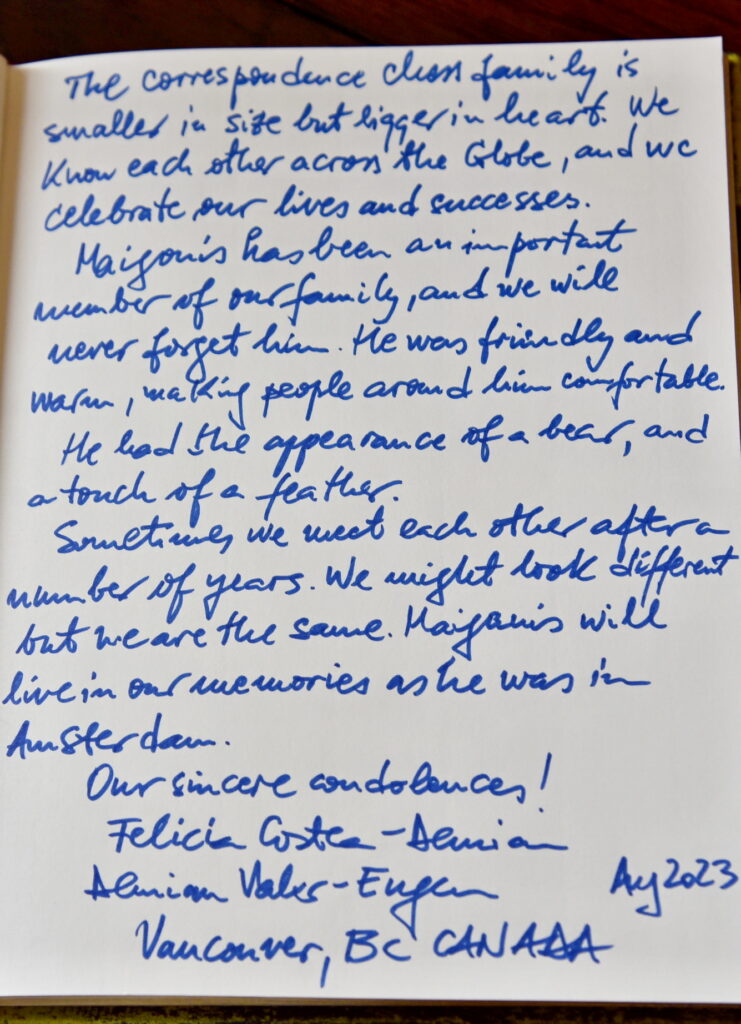 The correspondence chess family is
smaller in size but bigger in heart. We
know each other across the Globe, and we
celebrate our lives and successes.
Maigonis has been an important
member of our family, and we will
never forget him. He was friendly and
warm, making people around him comfortable.
He had the appearance of a bear, and
a touch of a feather.
Sometimes we meet each other after a
number of years. We might look different
but we are the same. Maigonis will
live in our memories as he was in
Amsterdam.
Our sincere condolences!
Felicia Costea-Demian
Demian Valer-Eugen
2023
Vancouver, BC CANADA